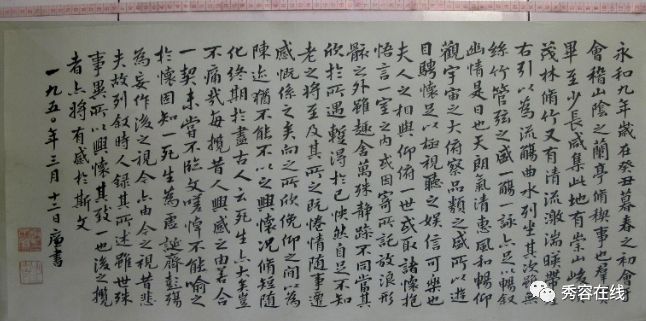 永和九年歲在癸丑暮春之初會
會稽山陰之蘭亭脩稧事也羣賢
畢至少長咸集此地有崇山峻
茂林脩竹又有清流激湍暎帶
右引以為流觴曲水列坐其次雖無
絲竹管弦之盛一觴一詠亦足以暢敘
幽情是日也天朗氣清惠風和暢仰
觀宇宙之大俯察品類之盛所以遊
目騁懷足以極視聽之娛信可樂也
夫人之相與俯仰一世或取諸懷抱
悟言一室之內或因寄所託放浪形
骸之外雖趣舍萬殊靜躁不同當其
欣於所遇暫得於己怏然自足不知
老之將至及其所之既惓情隨事遷
感慨係之矣向之所欣俛仰之間以為
陳迹猶不能不以之興懷況脩短隨
化終期於盡古人云死生亦大矣豈
不痛哉每攬昔人興感之由若合
一契未嘗不臨文嗟悼不能喻之
於懷固知一死生為虛誕齊彭殤
為妄作後之視今亦由今之視昔悲
夫故列敘時人錄其所述雖世殊
事異所以興懷其致一也後之攬
者亦將有感於斯文
一九五〇年三月十二日廣書
秀容在线